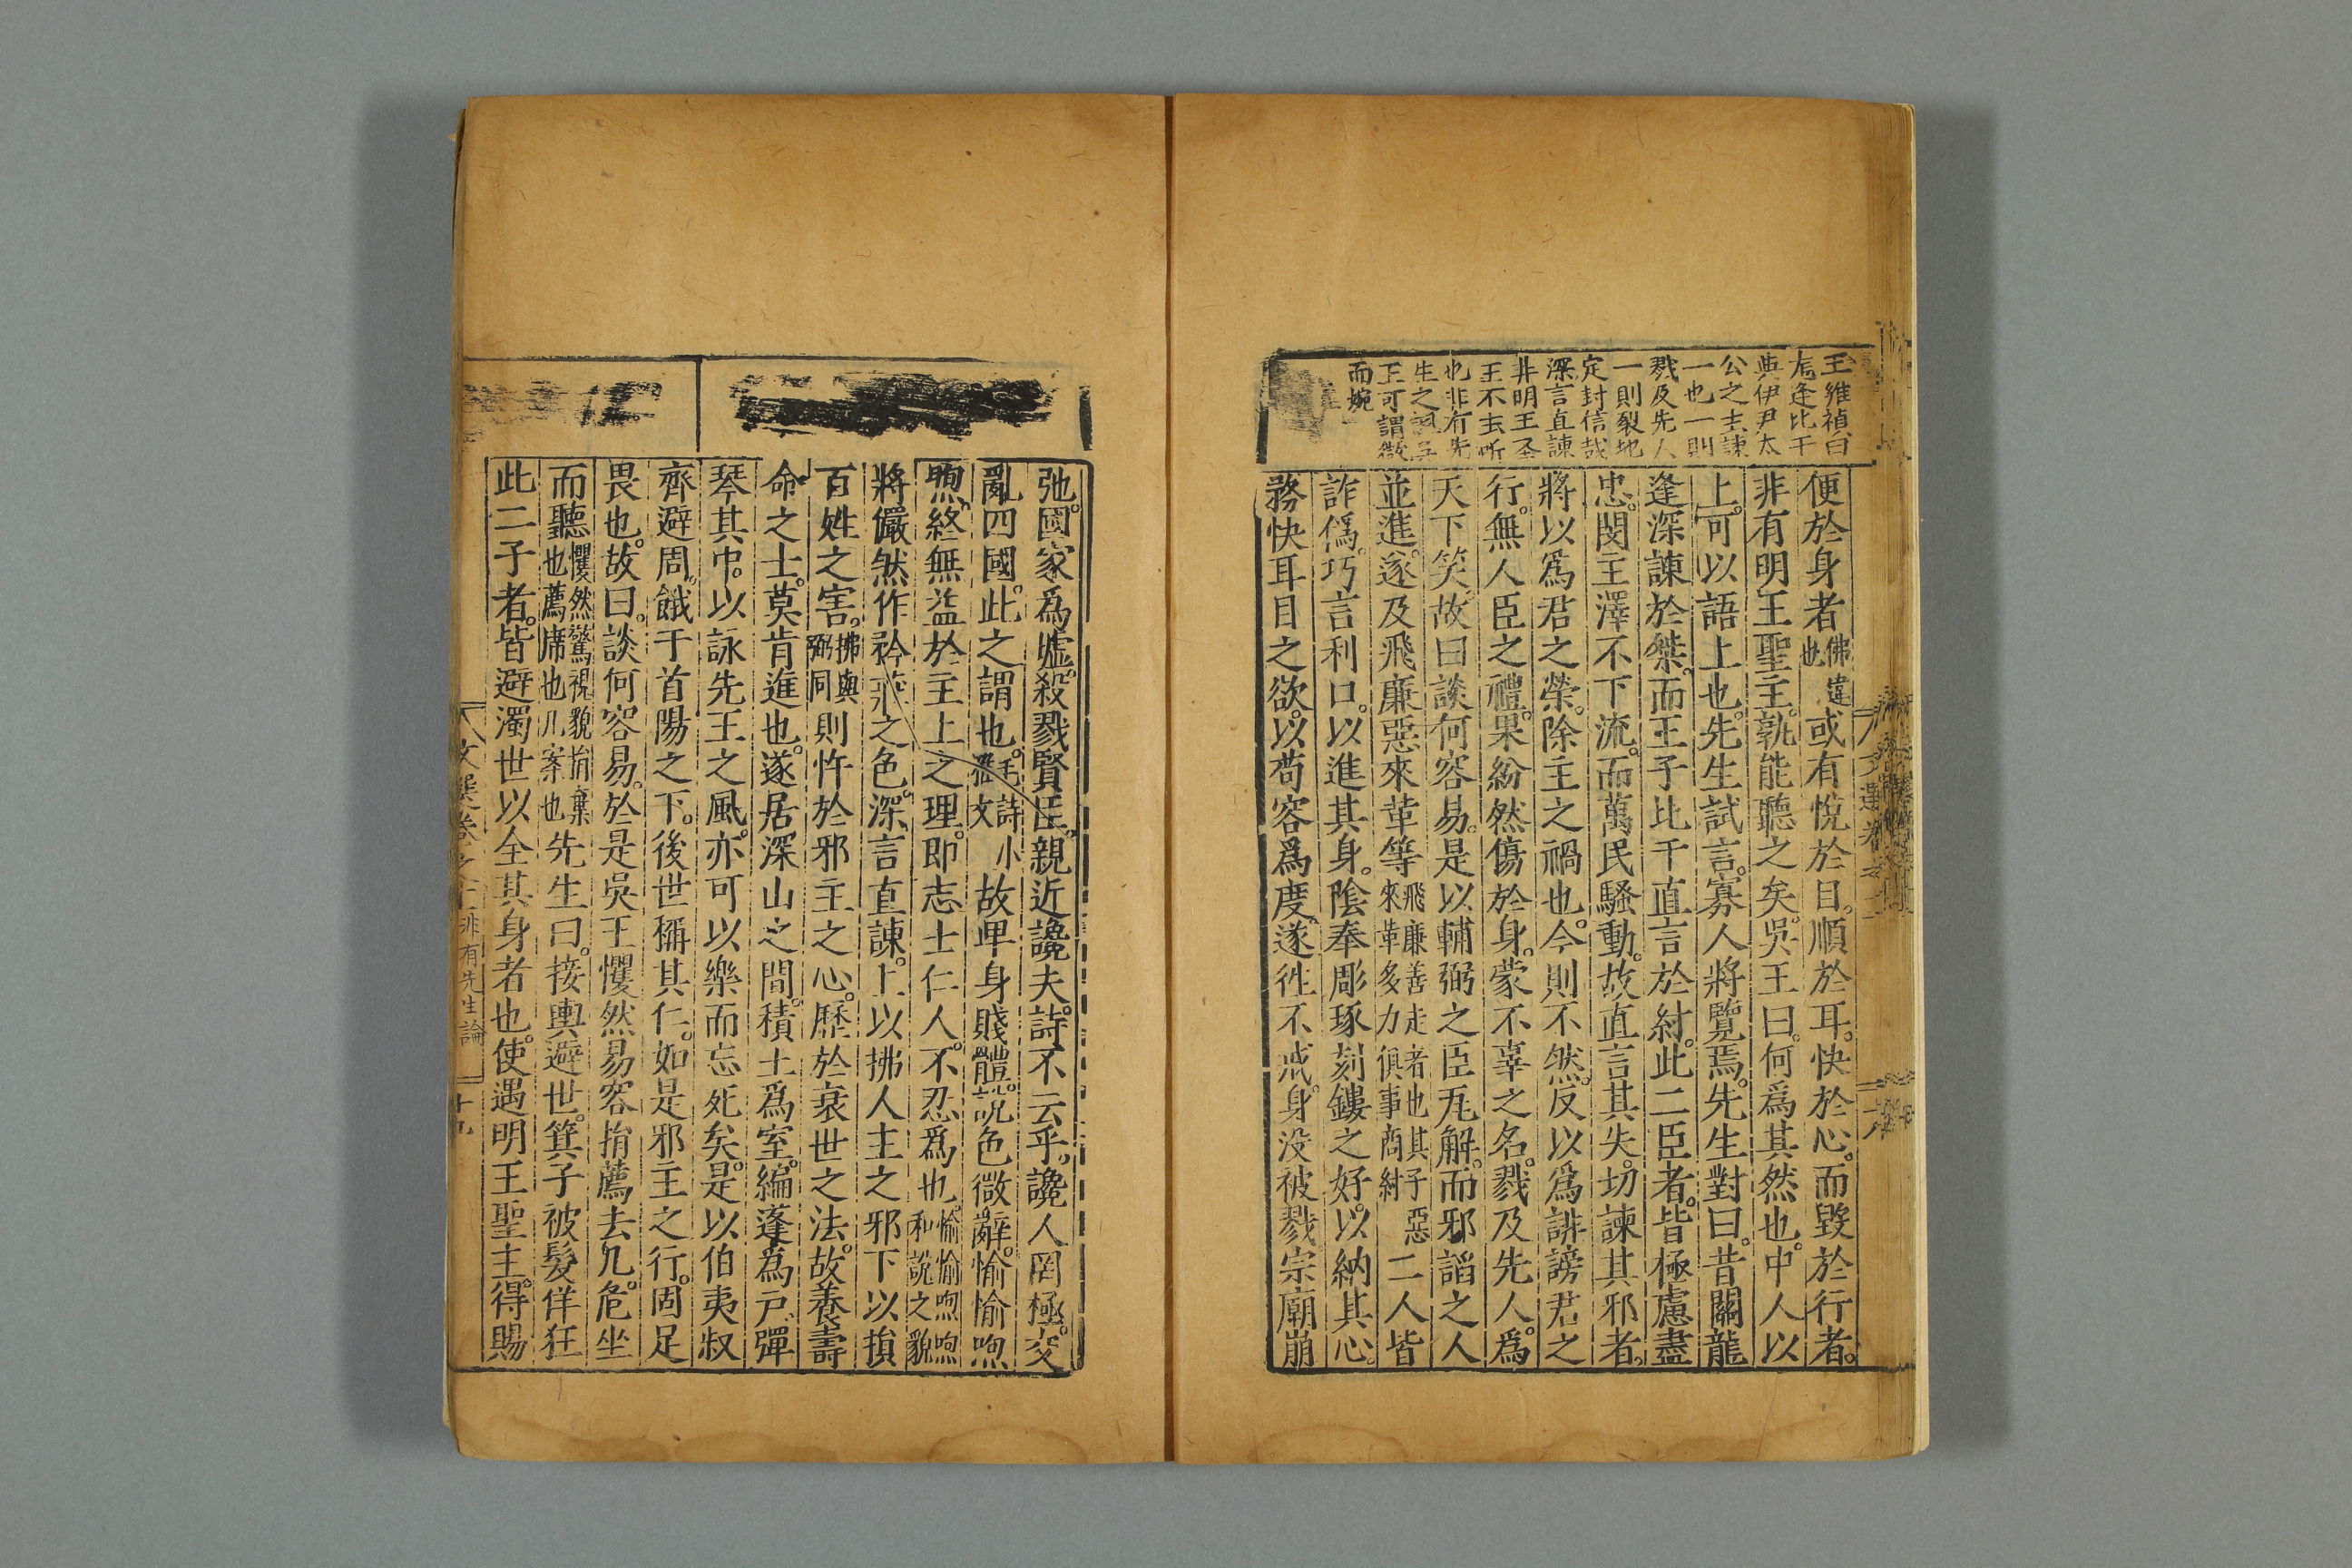 王維禎曰
尨逄比干
與伊尹太
公之主諫
一也一則
戮及先人
一則裂地
定封信哉
深言直諫
非明王圣
王不去听
也非有先
生之諷吴
王可謂微
而婉
便於身者佛違也或有悅於目順於耳快於心而毀於行者
非有明王聖主孰能聽之矣吳王曰何爲其然也中人以
上可以語上也先生試言寡人將覽焉先生對曰昔關龍
逄深諫於桀而王子比干直言於紂此二臣者皆極慮盡
忠閔主澤不下流而萬民騷動故直言其失切諫其邪者
將以爲君之榮除主之禍也今則不然反以爲誹謗君之
行無人臣之禮果紛然傷於身蒙不辜之名戮及先人爲
天下笑故曰談何容易是以輔弼之臣瓦解而邪謟之人
並進遂及飛廉惡來革等飛廉善走者也其子惡來革多力俱事商紂二人皆
詐僞巧言利口以進其身陰奉彫琢刻鏤之好以納其心
務快耳目之欲以苟容爲度遂徃不戒身没被戮宗廟崩
弛國家爲墟殺戮賢臣親近讒夫詩不云乎讒人罔極交
亂四國此之謂也毛詩小雅文故卑身賤體説色微辭愉愉呴
呴終無益於主上之理即志士仁人不忍爲也愉愉呴呴和說之貌
將儼然作矜莊之色深言直諫上以拂人主之邪下以損
百姓之害拂與弼同則忤於邪主之心歴於衰世之法故養壽
命之士莫肯進也遂居深山之間積土爲室編蓬爲戸彈
琴其中以詠先王之風亦可以樂而忘死矣是以伯夷叔
齊避周餓于首陽之下後世稱其仁如是邪主之行固足
畏也故曰談何容易於是吳王懼然易容捐薦去几危坐
而聽懼然驚視貌捐棄也薦席也几案也先生曰接輿避世箕子被髮佯狂
此二子者皆避濁世以全其身者也使遇明王聖主得賜
文選卷之十 非有先生論 十九